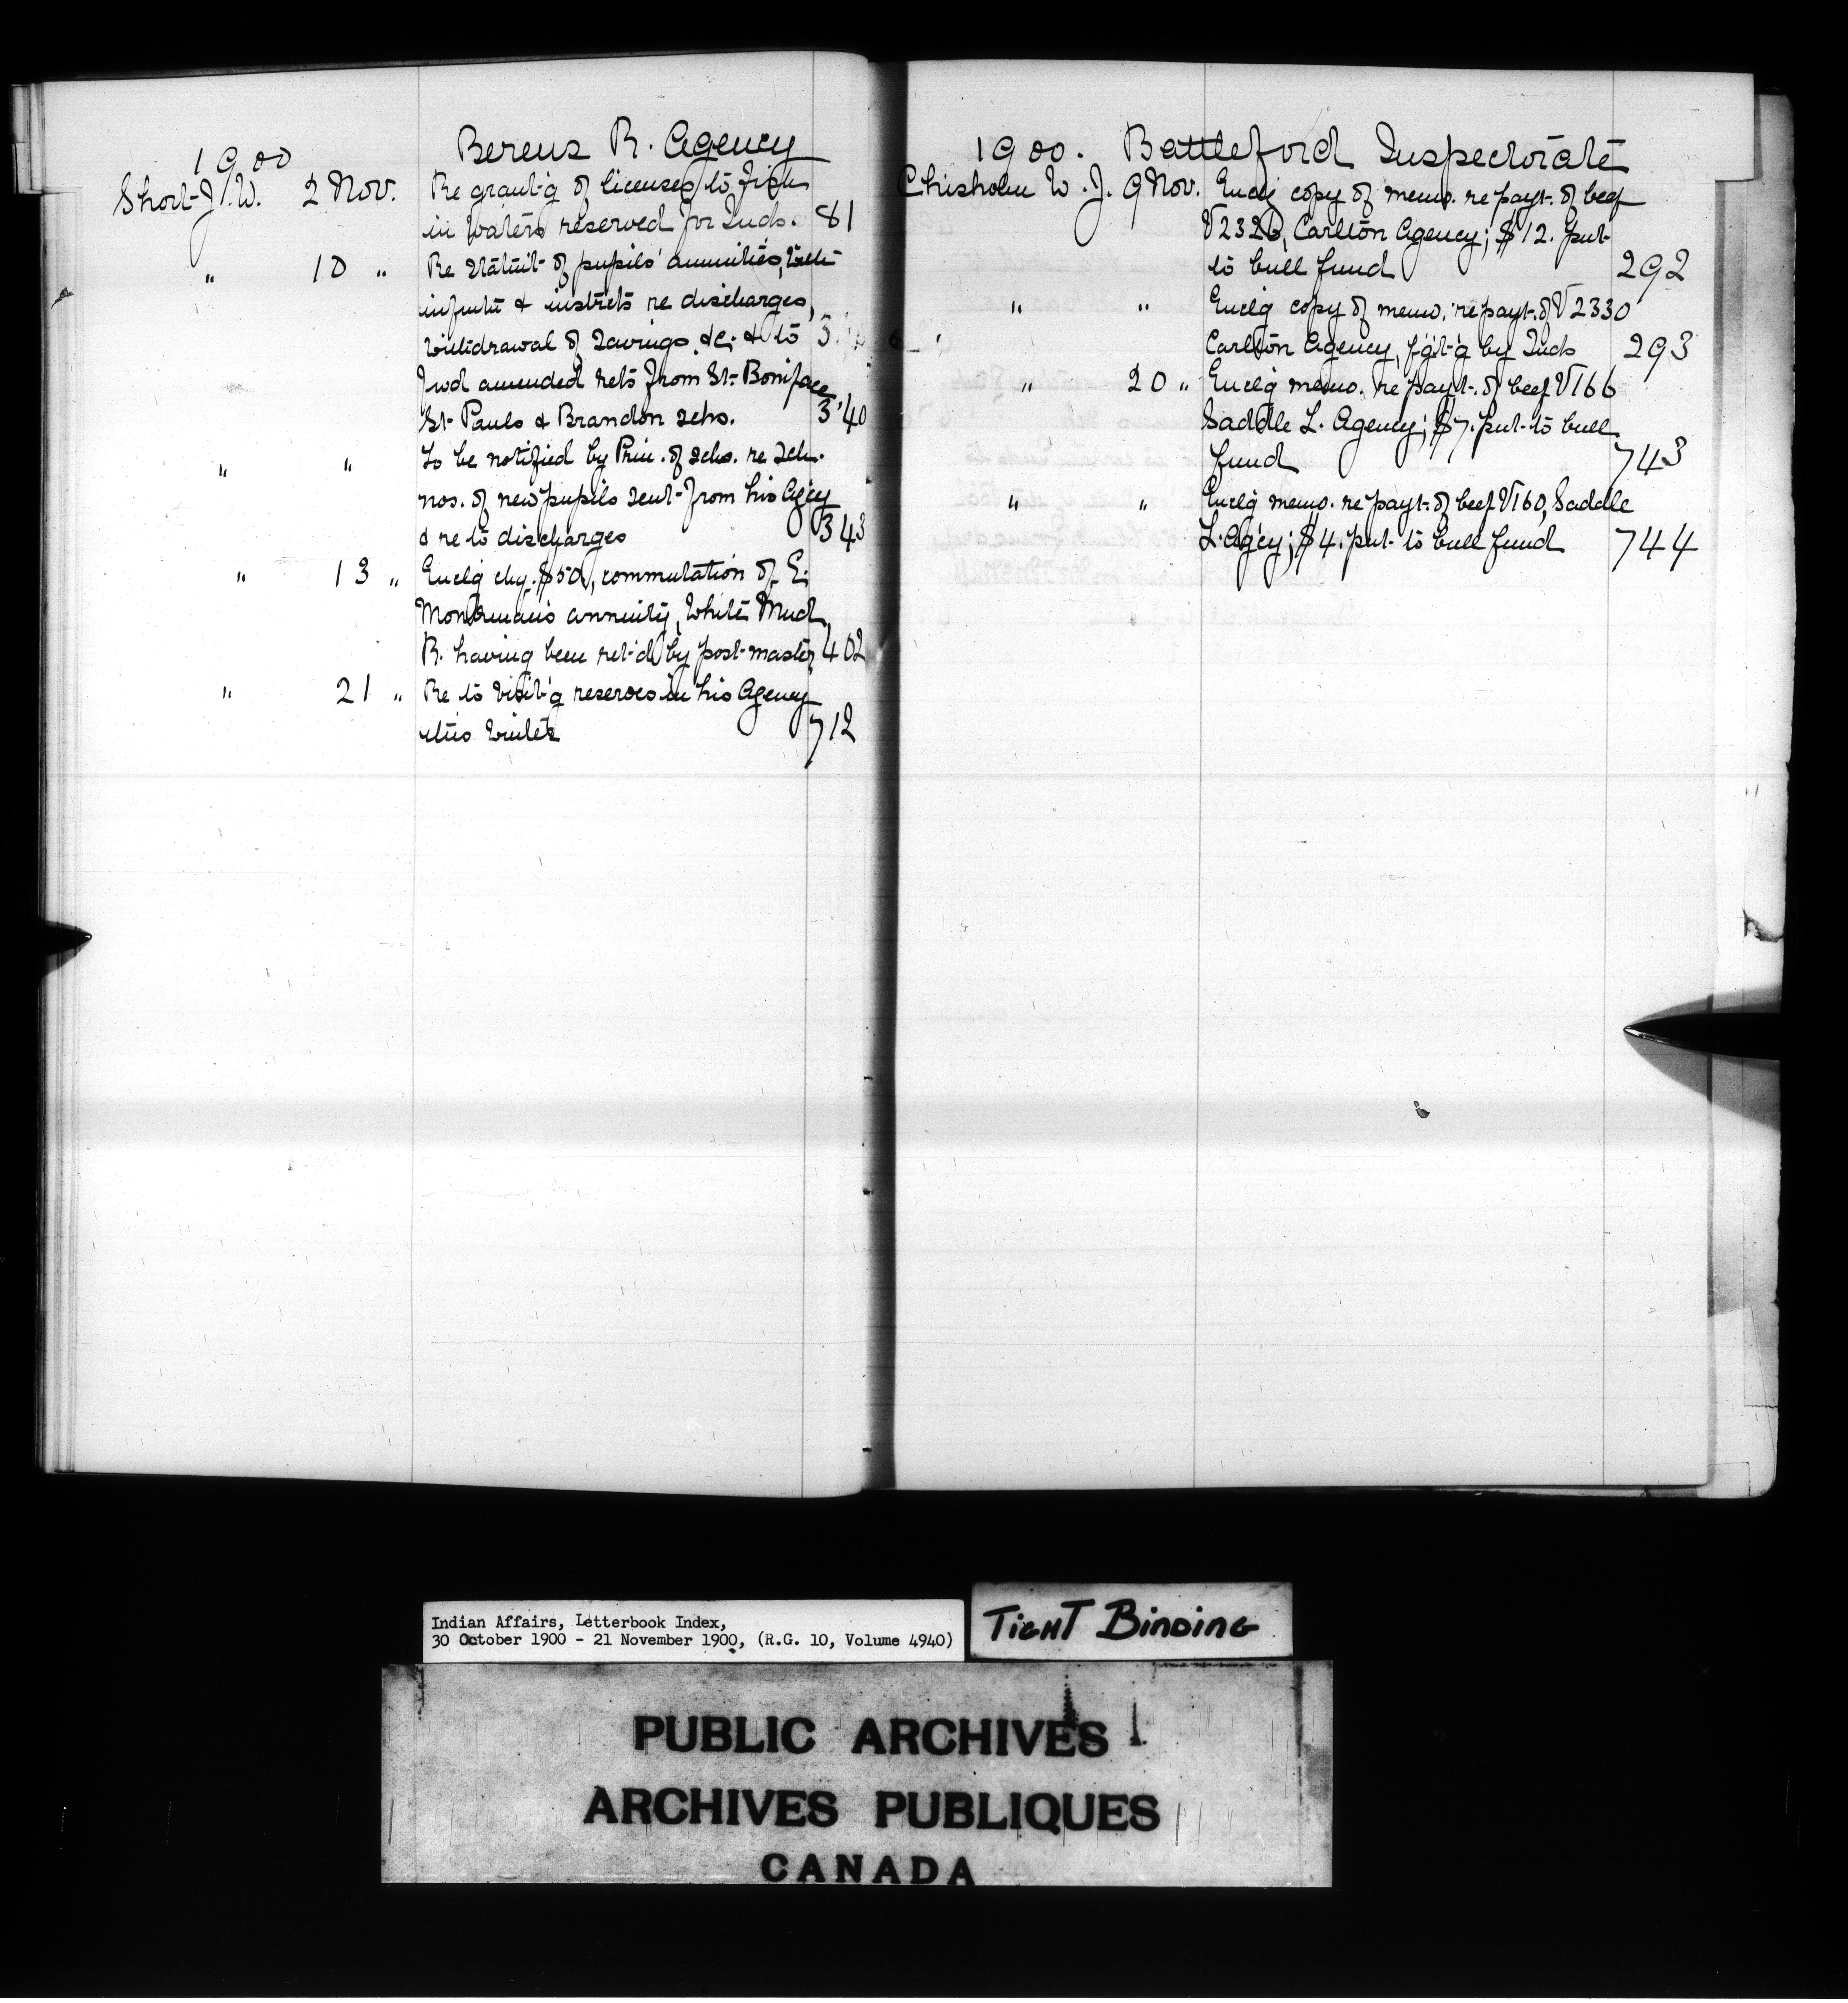 1900
Berens R. Agency
Short J. W. 2 Nov. Re grant'g of licenses to fish
in waters reserved for Inds. 81
" 10 " Re statmt of pupils' annuities, with
infmtn & instrcts re discharges,
withdrawal of savings, &c; & to
fwd amended rets from St. Boniface
St. Pauls & Brandon schs. 340
" " To be notified by Prin. of schs. re sch.
nos. of new pupils sent from his Agcy
& re to discharges 343
" 13 " Enclg chq. $50, commutation of E.
annuity, White Mud
R. having been ret'd by post-master 402
" 21 " Re to visit'g reserves in his Agency
this winter 712
1900. Battleford Inspectorate
Chisholm W. J. 9 Nov. Enclg copy of memo. re payt. of beef
Carlton Agency; $12. put
to bull fund 292
" " Enclg copy of memo. re payt. of V2330
Carlton Agency, f'g't'g by Inds 293
" 20 " Enclg memo. re payt. of beef V166
Saddle L. Agency; $7. put to bull
fund 743
" " Enclg memo. re payt. of beef V160, Saddle
L. Agcy; $4. put to bull fund 744
Indian Affairs, Letterbook Index,
30 October 1900 - 21 November 1900, (R.G. 10, Volume 4940)
TIGHT BINDING
PUBLIC ARCHIVES
ARCHIVES PUBLIQUES
CANADA